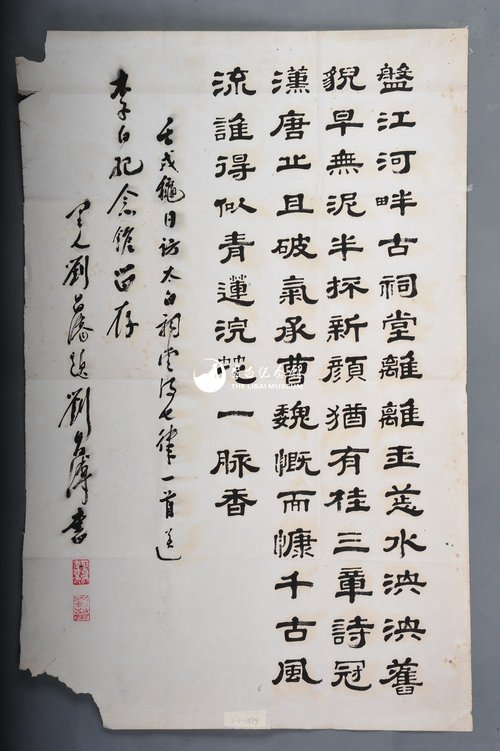 盤江河畔古祠堂離離玉水泱泱舊
貌早無泥半探新顔猶有桂三章詩冠
漢唐止且破氣承曹魏慨而慷千古風
流誰得似青蓮浣花一脉香
壬戌龝日訪太白祠得七律一首送
李白紀念館留存
里人劉題劉書
李白紀念館
THE LIBAI MUSEUM